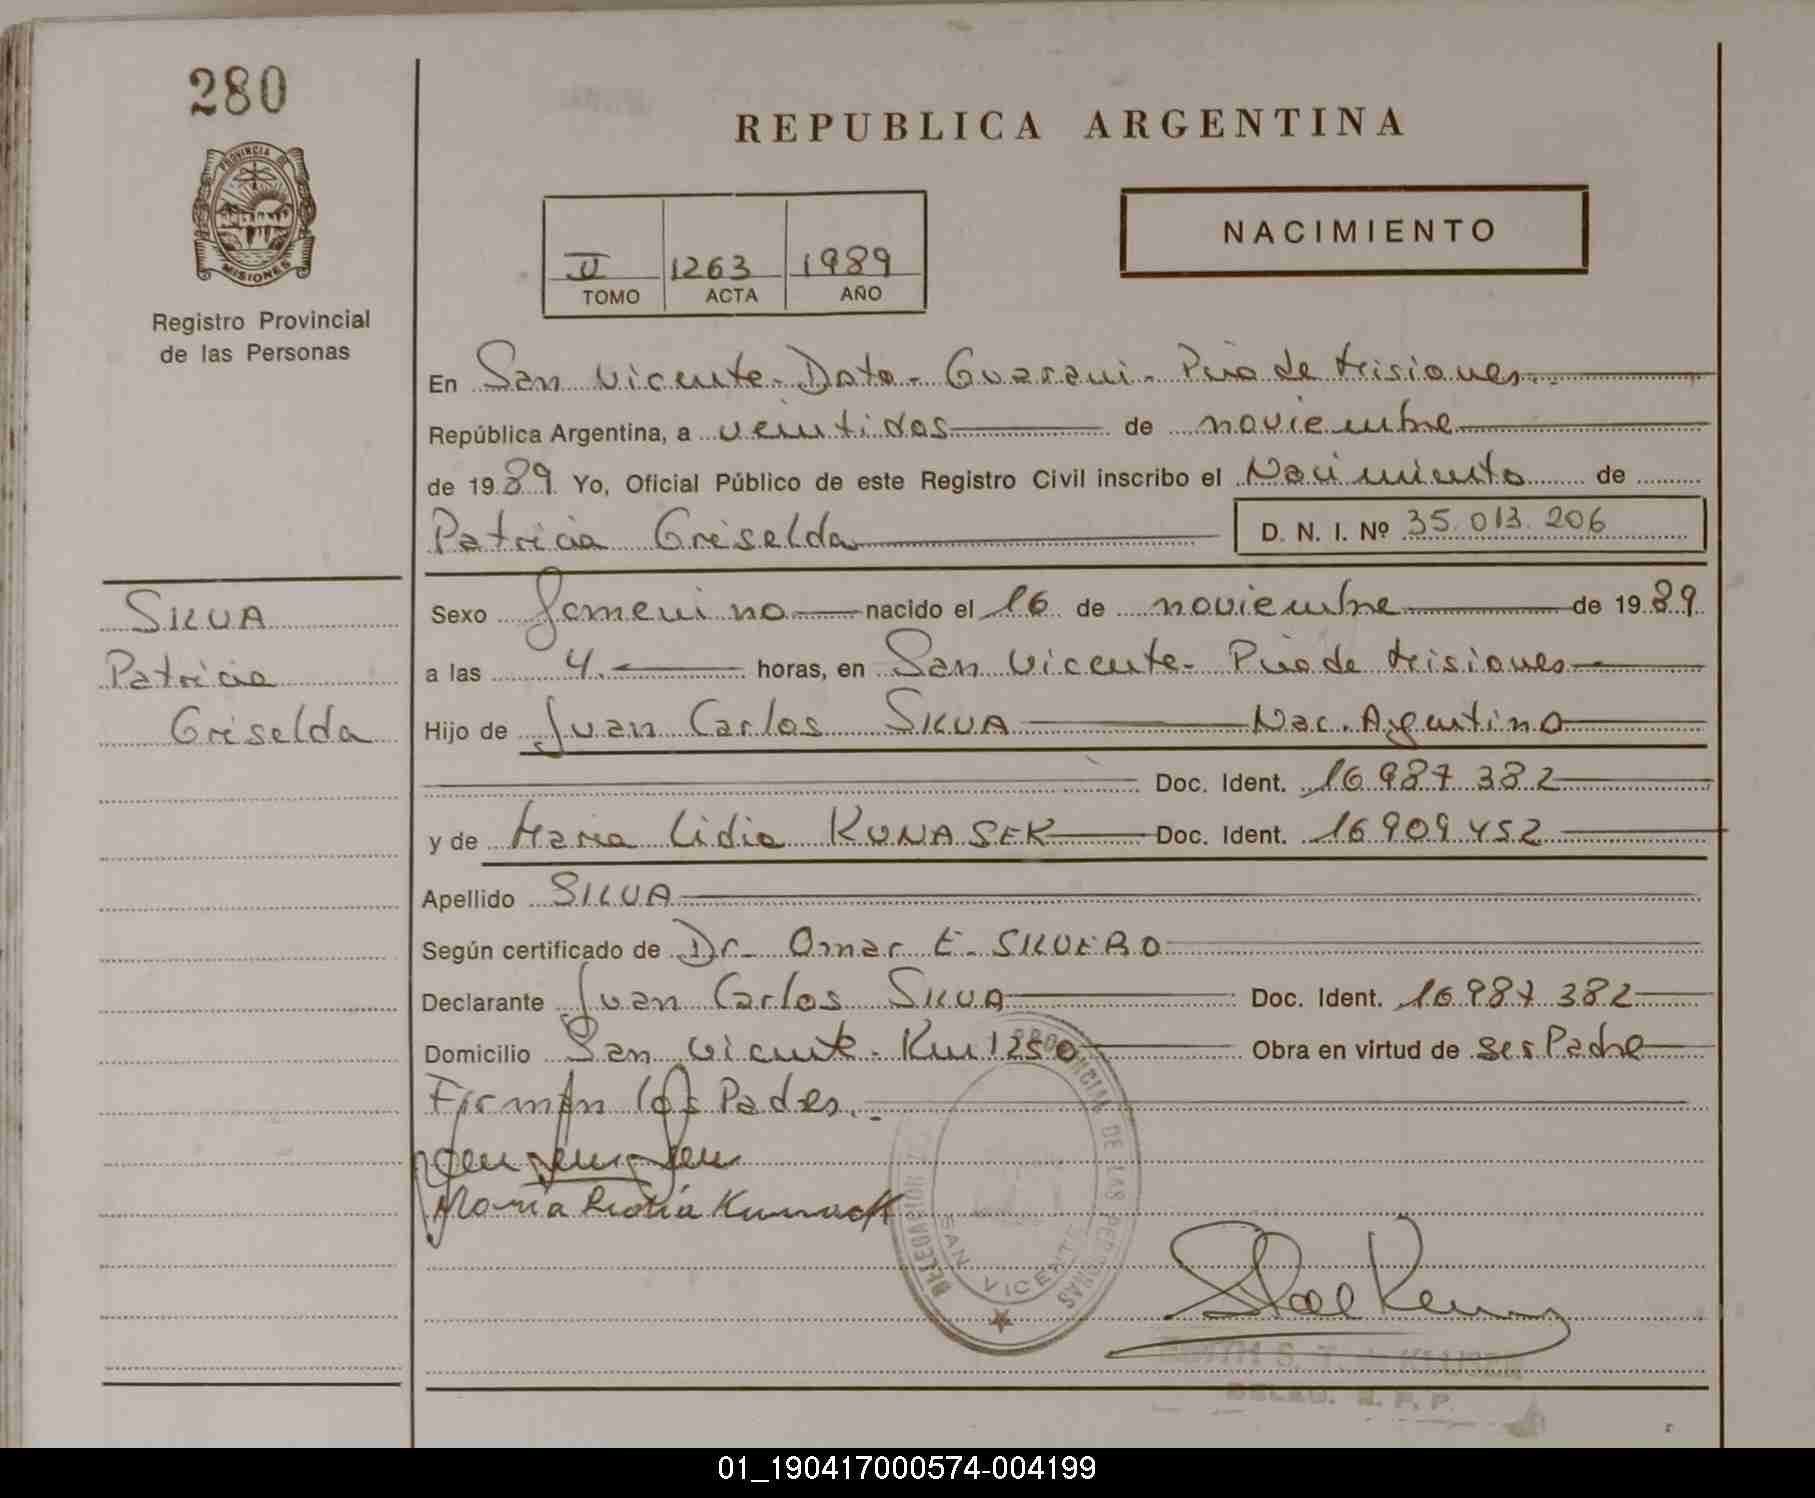 280
REPUBLICA ARGENTINA
PROVINCIA DE
MISIONES
Registro Provincial
de las Personas
II 1263 1989
TOMO ACTA AÑO
NACIMIENTO
En San Vicente - Dpto - Guarani - Pcia de Misiones
República Argentina, a veintidos de noviembre
de 1989 Yo, Oficial Público de este Registro Civil inscribo el Nacimiento de
Patricia Griselda D. N. I. Nº 35.013.206
SILVA
Patricia
Griselda
Sexo femenino nacido el 16 de noviembre de 1989
a las 4 horas, en San Vicente - Pcia de Misiones
Hijo de Juan Carlos SILVA Nac. Argentino
Doc. Ident. 16.987.382
y de Maria Lidia KUNASEK Doc. Ident. 16.909.452
Apellido SILVA
Según certificado de Dr. Omar E. SILVERO
Declarante Juan Carlos SILVA Doc. Ident. 16.987.382
Domicilio San Vicente - Km 1250 Obra en virtud de ser Padre
Firman los Padres.
María Lidia Kunasek
DELEGACION PROVINCIAL DE LAS PERSONAS
SAN VICENTE
S. T.
DELEG. R. P. P.
01_190417000574-004199